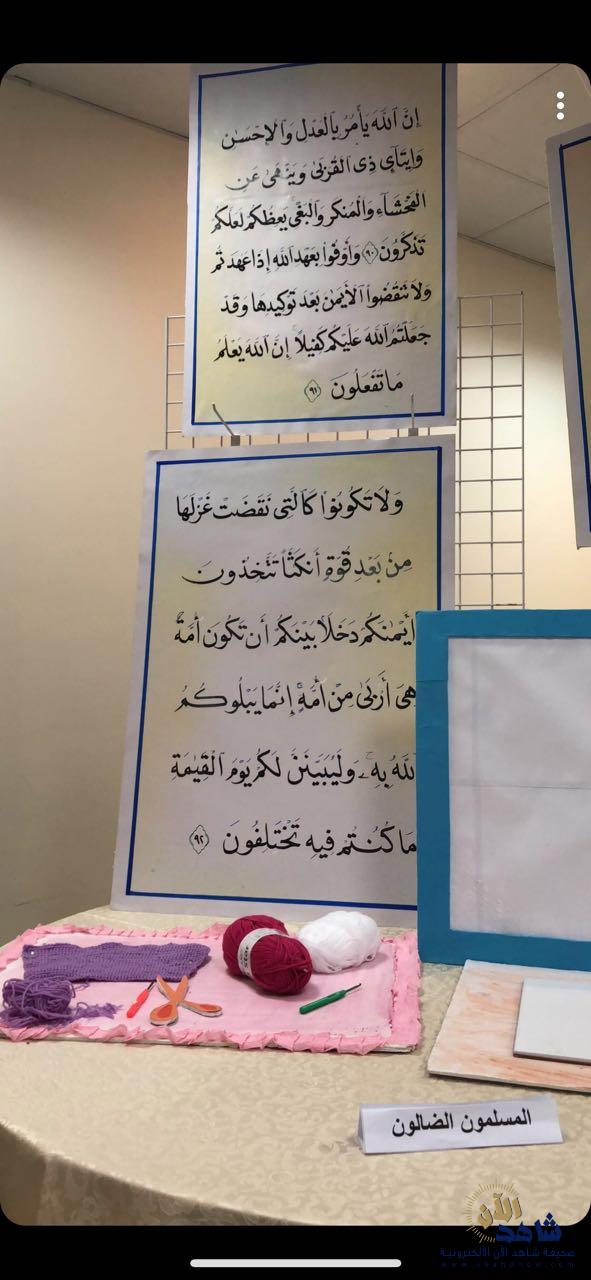 إِنَّ ٱللَّهَ يَأْمُرُ بِٱلْعَدْلِ وَٱلْإِحْسَٰنِ
وَإِيتَآيِٕ ذِى ٱلْقُرْبَىٰ وَيَنْهَىٰ عَنِ
ٱلْفَحْشَآءِ وَٱلْمُنكَرِ وَٱلْبَغْىِ يَعِظُكُمْ لَعَلَّكُمْ
تَذَكَّرُونَ ٩٠ وَأَوْفُوا۟ بِعَهْدِ ٱللَّهِ إِذَا عَٰهَدتُّمْ
وَلَا تَنقُضُوا۟ ٱلْأَيْمَٰنَ بَعْدَ تَوْكِيدِهَا وَقَدْ
جَعَلْتُمُ ٱللَّهَ عَلَيْكُمْ كَفِيلًا إِنَّ ٱللَّهَ يَعْلَمُ
مَا تَفْعَلُونَ ٩١
وَلَا تَكُونُوا۟ كَٱلَّتِى نَقَضَتْ غَزْلَهَا
مِنۢ بَعْدِ قُوَّةٍ أَنكَٰثًا تَتَّخِذُونَ
أَيْمَٰنَكُمْ دَخَلًۢا بَيْنَكُمْ أَن تَكُونَ أُمَّةٌ
هِىَ أَرْبَىٰ مِنْ أُمَّةٍ إِنَّمَا يَبْلُوكُمُ
ٱللَّهُ بِهِۦ وَلَيُبَيِّنَنَّ لَكُمْ يَوْمَ ٱلْقِيَٰمَةِ
مَا كُنتُمْ فِيهِ تَخْتَلِفُونَ ٩٢
المسلمون الضالون
شاهد الآن
صحيفة شاهد الآن الالكترونية
www.shahdnow.com